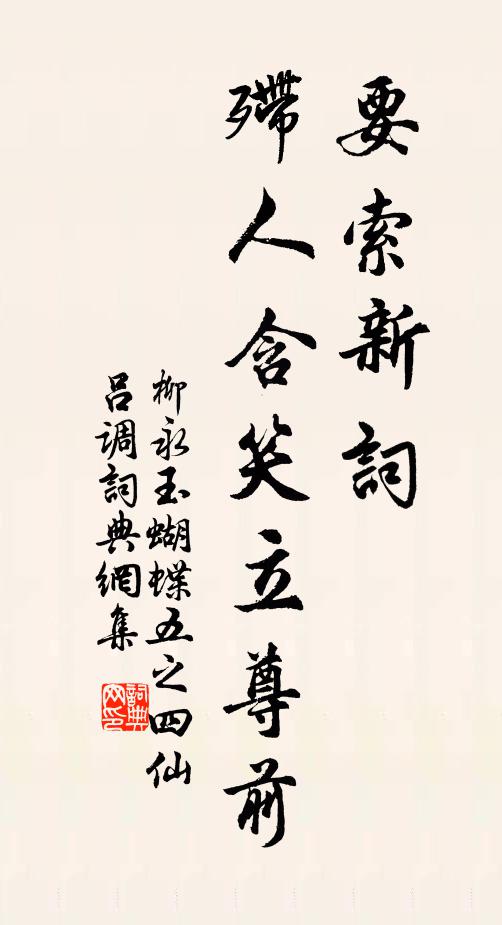 要索新詞
殢人含笑立尊前
柳永玉蝴蝶五之四仙
吕调詞典網集
詞典
网印